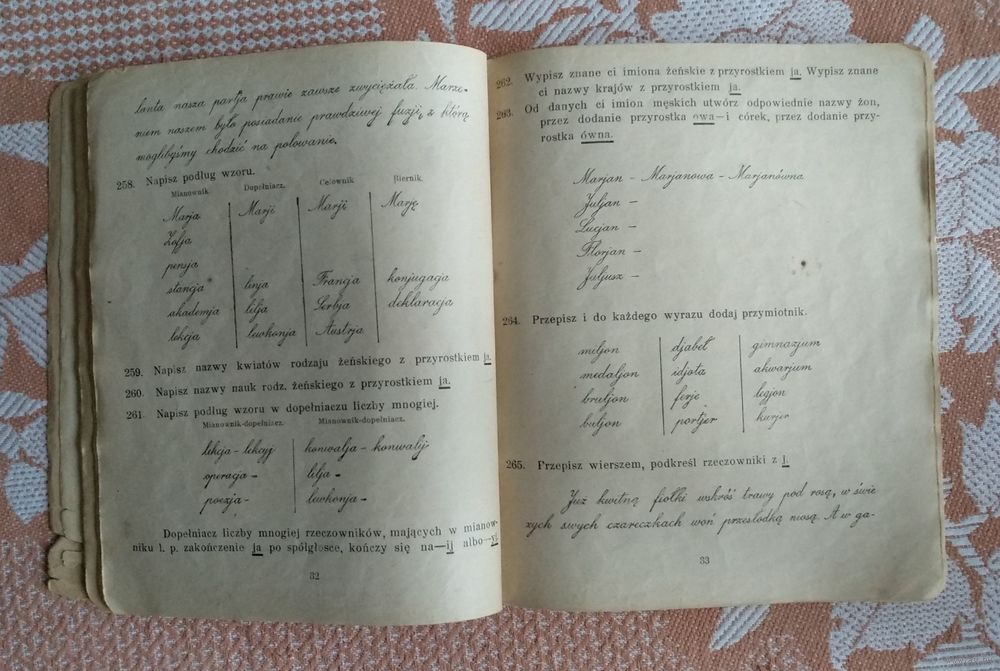 lanta nasza partja prawie zawsze zwyciężała. Marze-
niem naszem było posiadanie prawdziwej fuzji, z którą
moglibyśmy chodzić na polowanie.
258. Napisz podług wzoru.
Mianownik. Dopełniacz. Celownik. Biernik.
Marja Marji Marji Marję
Zofja
pensja
stancja linja Francja konjugacja
akademja lilja Serbja deklaracja
lekcja lewkonja Austrja
259. Napisz nazwy kwiatów rodzaju żeńskiego z przyrostkiem ja.
260. Napisz nazwy nauk rodz. żeńskiego z przyrostkiem ja.
261. Napisz podług wzoru w dopełniaczu liczby mnogiej.
Mianownik-dopełniacz. Mianownik-dopełniacz.
lekcja - lekcyj konwalja - konwalij
operacja - lilja -
poezja - lewkonja -
Dopełniacz liczby mnogiej rzeczowników, mających w mianow-
niku l. p. zakończenie ja po spółgłosce, kończy się na—ij albo—yj.
32
262. Wypisz znane ci imiona żeńskie z przyrostkiem ja. Wypisz znane
ci nazwy krajów z przyrostkiem ja.
263. Od danych ci imion męskich utwórz odpowiednie nazwy żon,
przez dodanie przyrostka owa—i córek, przez dodanie przy-
rostka ówna.
Marjan - Marjanowa - Marjanówna
Juljan -
Lucjan -
Florjan -
Juljusz -
264. Przepisz i do każdego wyrazu dodaj przymiotnik.
miljon djabeł gimnazjum
medaljon idjota akwarjum
bruljon ferje legjon
buljon portjer kurjer
265. Przepisz wierszem, podkreśl rzeczowniki z j.
Już kwitną fiołki wskróś trawy pod rosą, w świe
żych swych czareczkach woń przesłodką niosą. A w ga-
33